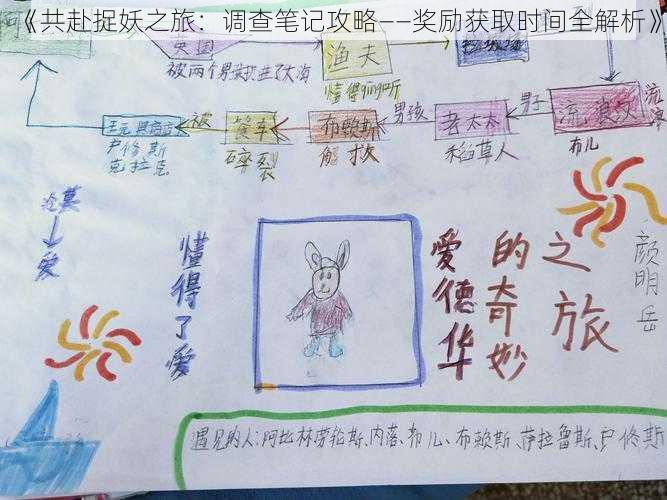 《共赴捉妖之旅：调查笔记攻略——奖励获取时间全解析》
英国
被两个男孩
大海
渔夫
懂得倾听
流浪汉
流浪
布儿
男子
老太太
稻草人
男孩
布赖斯
解救
篷车
碎裂
被
克拉克
从莫
爱
懂得了爱
爱德华
的奇妙
之旅
颜明岳
遇见的人:阿比林、劳伦斯、内莉、布儿、布赖斯、萨拉鲁斯、卢修斯